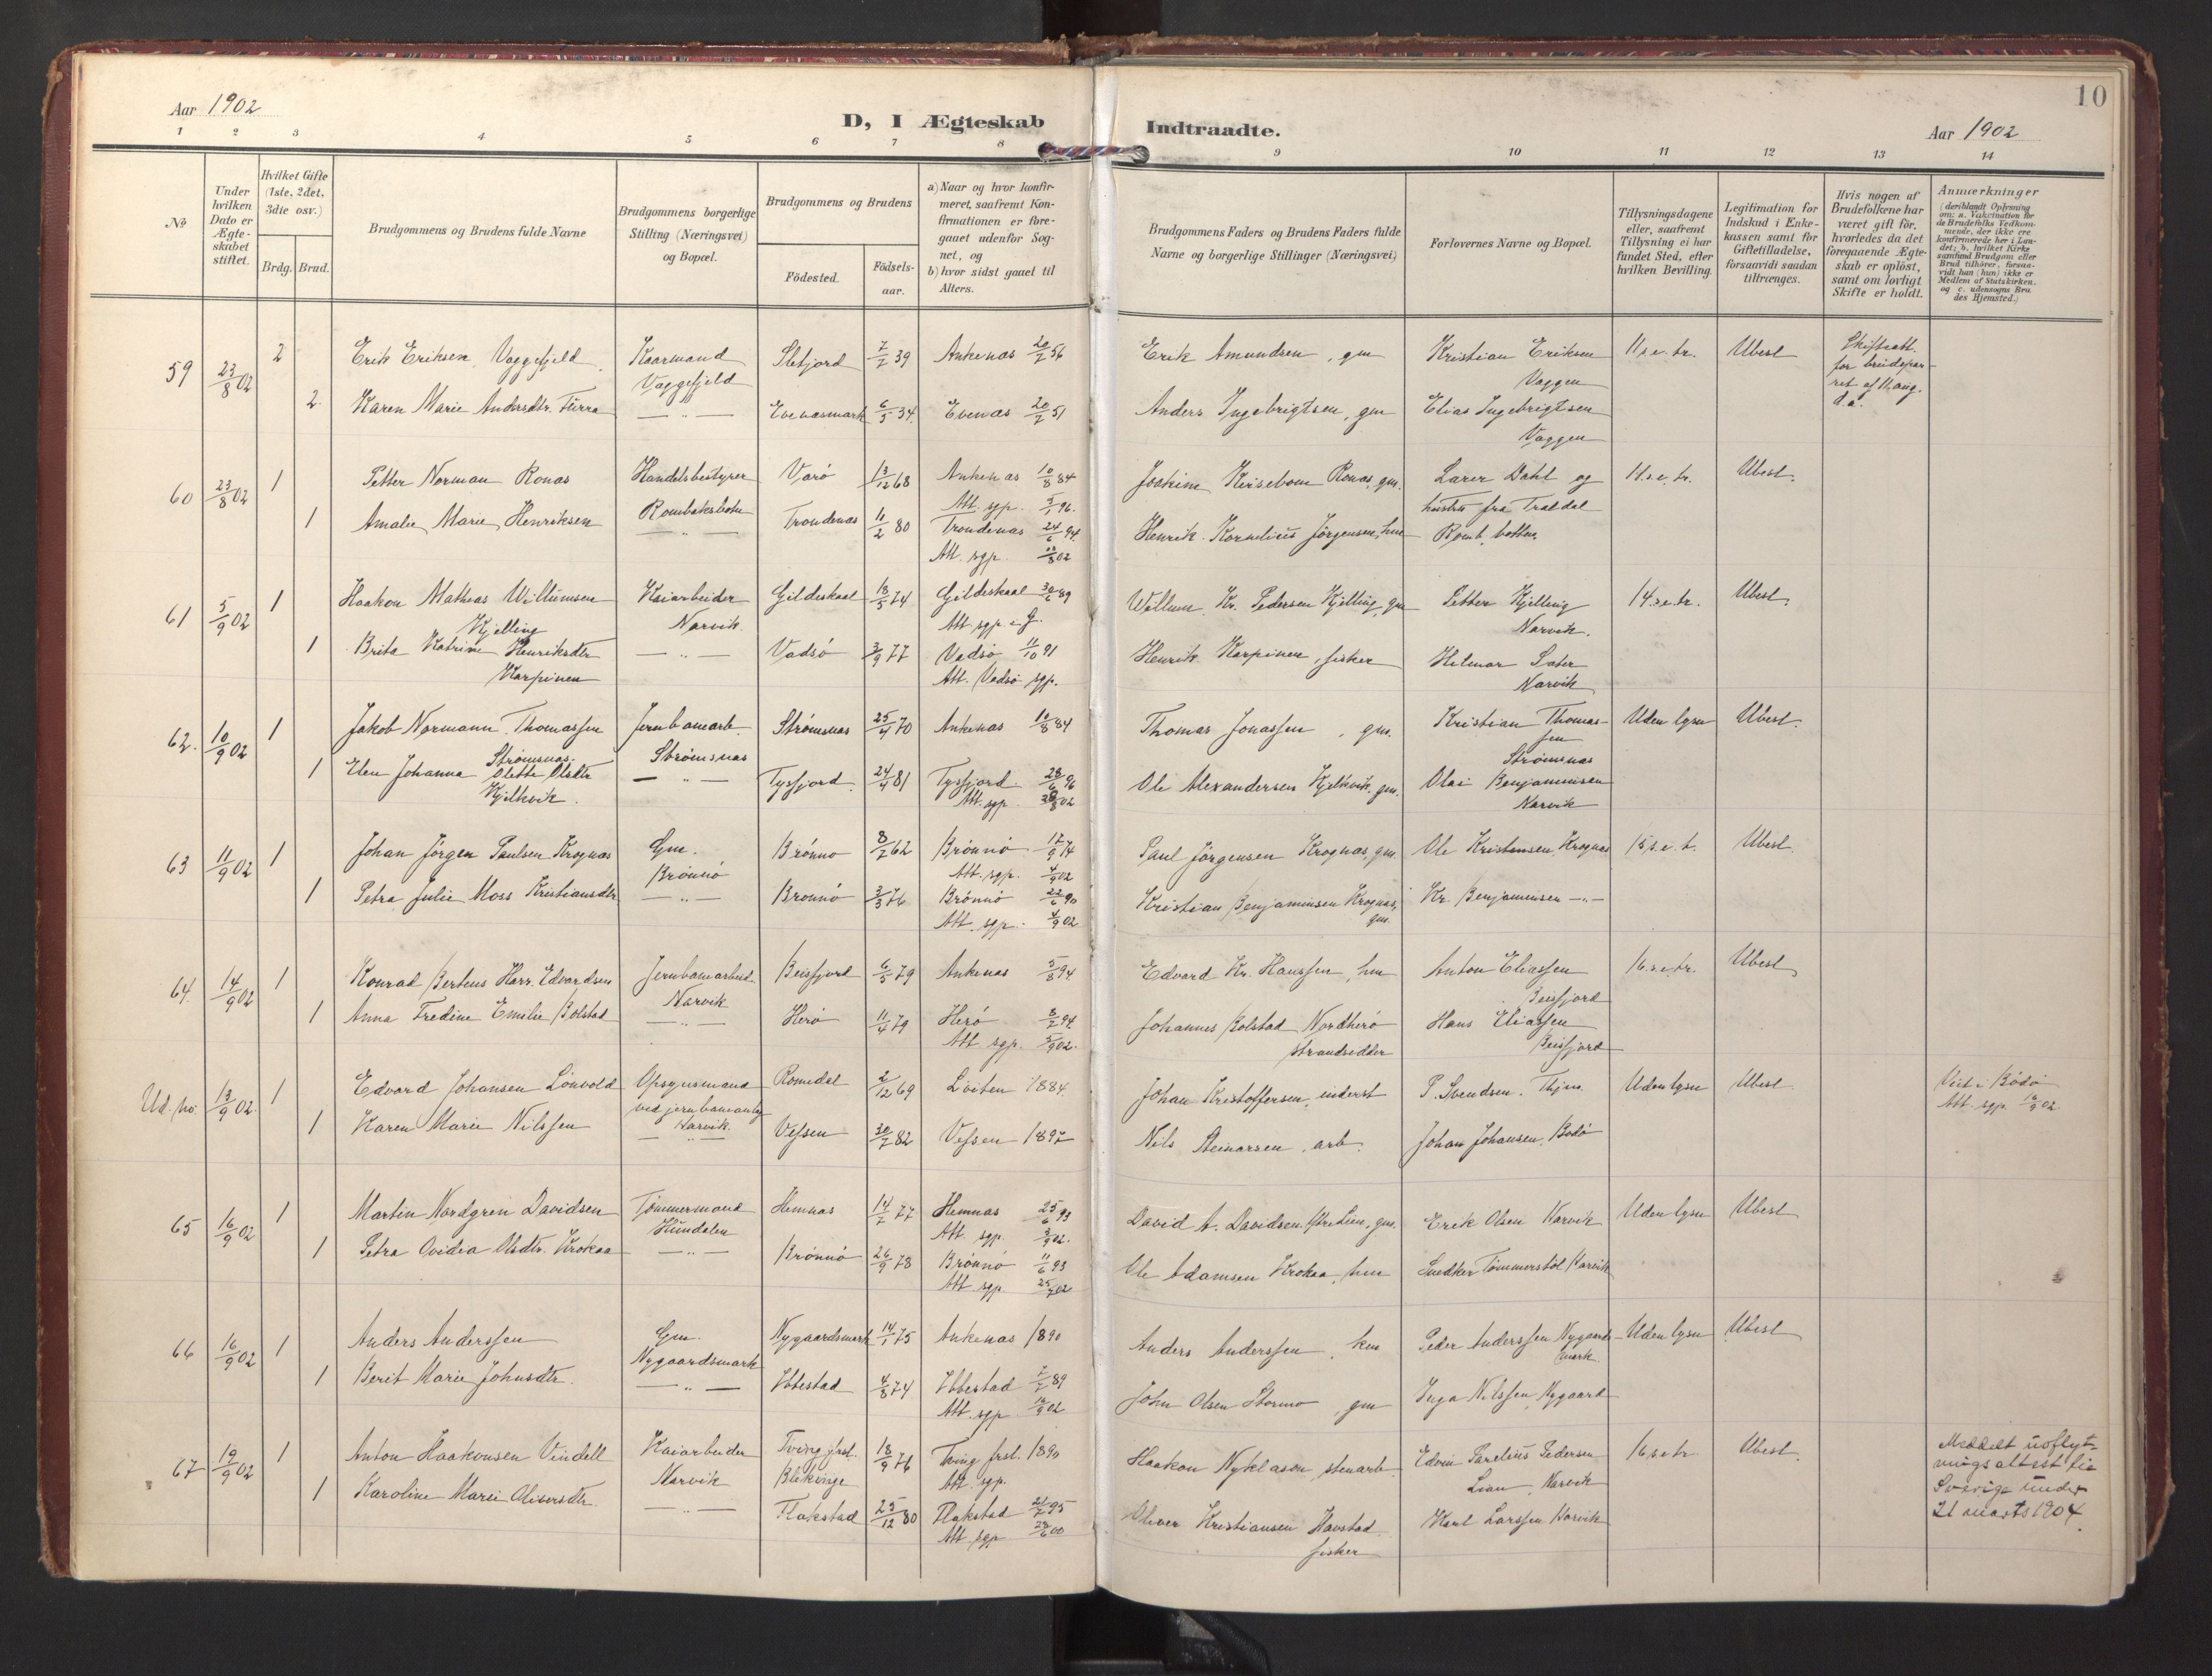 Aar 1902
D, I Ægteskab Indtraadte.
Aar 1902
10
1 2 3 4 5 6 7 8 9 10 11 12 13 14
№
Under hvilken Dato er Ægteskabet stiftet.
Hvilket Gifte (1ste, 2det, 3die osv.)
Brdg. Brud.
Brudgommens og Brudens fulde Navne
Brudgommens borgerlige Stilling (Næringsvei) og Bopæl.
Brudgommens og Brudens
Födested.
Födsels-aar.
a) Naar og hvor konfir-
meret, saafremt Kon-
firmationen er fore-
gaaet udenfor Sog-
net, og
b) hvor sidst gaaet til
Alters.
Brudgommens Faders og Brudens Faders fulde
Navne og borgerlige Stillinger (Næringsvei)
Forlovernes Navne og Bopæl.
Tillysningsdagene
eller, saafremt
Tillysning ei har
fundet Sted, efter
hvilken Bevilling.
Legitimation for
Indskud i Enke-
kassen samt for
Giftetilladelse,
forsaavidt saadan
tiltrænges.
Hvis nogen af
Brudefolkene har
været gift för,
hvorledes da det
foregaaende Ægte-
skab er oplöst,
samt om lovligt
Skifte er holdt.
Anmærkninger
(deriblandt Oplysning
om: a. Vakcination for
de Brudefolks Vedkom-
mende, der ikke ere
konfirmerede her i Lan-
det; b. hvilket Kirke
samfund Brudgom eller
Brud tilhörer, forsaa-
vidt han (hun) ikke er
Medlem af Statskirken.
og c. udensogns Bru
des Hjemsted.)
59 23/8 02 2 Erik Eriksen Vaggefjeld Kaarmand Sletjord 7/2 39 Ankenæs 20/7 56 Erik Amundsen, gm Kristian Eriksen 11 s.e.tr. Ubest Skifteatt.
Vaggefjeld Vaggen for brudepar-
2. Karen Marie Andersdtr. Turra — " — Evenæsmark 6/5 34. Evenæs 20/7 51 Anders Ingebrigtsen, gm Elias Ingebrigtsen ret af 11. aug.
Vaggen d.a.
60 23/8 02 1 Petter Norman Ronæs Handelsbestyrer Værö 13/12 68 Ankenæs 10/8 84 Joakim Ronæs, gm. Lærer Dahl og 11. s.e.tr. Ubest.
Rombaksbotn Att. sgp. 5/1 96. hustru fra Traldal
1 Amalie Marie Henriksen — " — Trondenæs 11/2 80 Trondenæs 24/6 94. Henrik Kornelius Jörgensen, hm Romb. botten.
Att. sgp. 02
61 5/9 02 1 Haakon Mathias Willumsen Kaiarbeider Gildeskaal 18/5 74 Gildeskaal 30/6 89 Willum Kr. Pedersen Kjelling, gm Petter Kjelling 14. s.e.tr. Ubest.
Kjelling Narvik. Att. sgp. i G. Narvik.
1 Brita Katrine Henriksdtr — " — Vadsö 3/9 77 Vadsö 11/10 91 Henrik Karpinen, fisker Hilmar Sæter
Karpinen Att. Vadsö sgp. Narvik
62. 10/9 02 1 Jakob Normann Thomassen Jernbanearb. Strömsnæs 25/4 70 Ankenæs 10/8 84 Thomas Jonassen, gm. Kristian Thomas- Uden lysn Ubest.
Strömsnæs. Strömsnæs sen
1 Elen Johanna Olette Olsdtr — " — Tysfjord. 24/4 81 Tysfjord 28/6 96 Ole Alexandersen Kjelkvik, gm. Strömsnæs
Kjelkvik. Att. sgp. 02 Olai Benjaminsen
Narvik
63 11/9 02 1 Johan Jörgen Paulsen Krognæs Gm. Brönnö 8/2 62 Brönnö Paul Jörgensen Krognæs, gm. Ole Kristensen Krognæs 15 s.e.t. Ubest.
Brönnö Att. sgp. 4/9 02
1 Petra Julie Moss Kristiansdtr — " — Brönnö 3/3 76 Brönnö 22/6 90 Kristian Benjaminsen Krognæs, Kr. Benjaminsen — " —
Att. sgp. 4/9 02 gm.
64. 14/9 02 1 Konrad Berteus Edvardsen Jernbanearbeid. Beisfjord 6/5 79 Ankenæs 5/8 94 Edvard Kr. Hanssen, hm Anton Eliassen 16 s.e.tr. Ubest.
Narvik Beisfjord
1 Anna Fredine Emilie Bolstad — " — Herö 11/4 79 Herö 94 Johannes Bolstad Nordherö Hans Eliassen
Att. sgp. 5/9 02. strandsidder Beisfjord
Ud. no. 13/9 02. 1 Edvard Johansen Lönvold Opsynsmand Romedal 2/12 69 Löiten 1884. Johan Kristoffersen, inderst P. Svendsen. Uden lysn Ubest. Viet i Bodö
ved jernbaneanlæg. Att. sgp. 02.
1 Karen Marie Nilssen Narvik. Vefsen 30/7 82 Vefsen 1897 Nils Steinarsen, arb. Johan Johansen, Bodö
— " —
65 16/9 02 1 Martin Nordgren Davidsen Tömmermand Hemnæs 14/7 77 Hemnæs 25/6 93 David A. Davidsen, gm. Erik Olsen Narvik Uden lysn Ubest
Hundalen Att. sgp. 3/9 02.
1 Petra Ovidia Olsdtr. Krokaa — " — Brönnö 26/9 78 Brönnö 11/6 93 Ole Adamsen Krokaa, hm Snedker Tömmerstöl Narvik
Att. sgp. 02
66 16/9 02 1 Anders Anderssen Gm. Nygaardsmark 14/1 75 Ankenæs 1890 Anders Anderssen, Peder Anderssen Nygaards- Uden lysn Ubest
Nygaardsmark mark.
1 Berit Marie Johnsdtr. — " — Ibbestad 4/8 74 Ibbestad 7/7 89 John Olsen Stormo, gm Inga Nilssen, Nygaard
Att. sgp. 02
67 19/9 02 1 Anton Haakonsen Vindell Kaiarbeider Tving frst. 18/9 76 Tving frst. 1890 Haakon Nyklason, stenarb. Edvin Parelius Pedersen 16 s.e.tr Ubest. Meddelt udflyt-
Narvik Blekinge Att. sgp. Lian, Narvik ningsattest til
1 Karoline Marie Oliversdtr. — " — Flakstad 25/12 80 Flakstad 21/7 95 Oliver Kristiansen Havstad Karl Larssen Narvik Sverige under
Att. sgp 28/6 00 fisker 21 marts 1904.